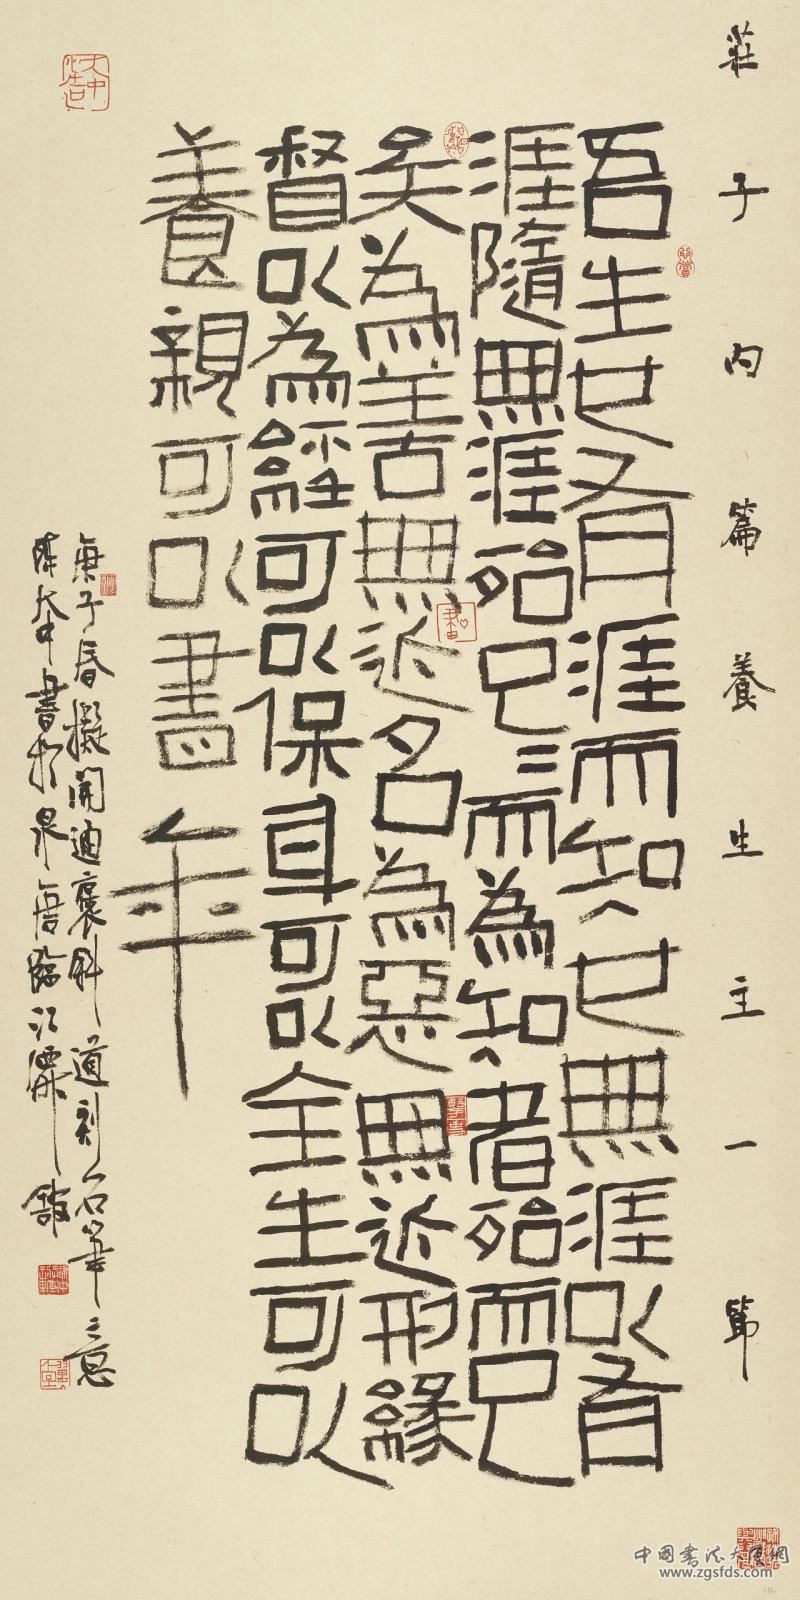 莊子內篇養生主一節
吾生也有涯而知也無涯以有
涯隨無涯殆已〻而為知者殆而已
矣為善無近名為惡無近刑緣
督以為經可以保身可以全生可以
養親可以盡年
庚子春擬開通褒斜道刻石筆之意
書於泉唐臨江
www.zgsfds.com